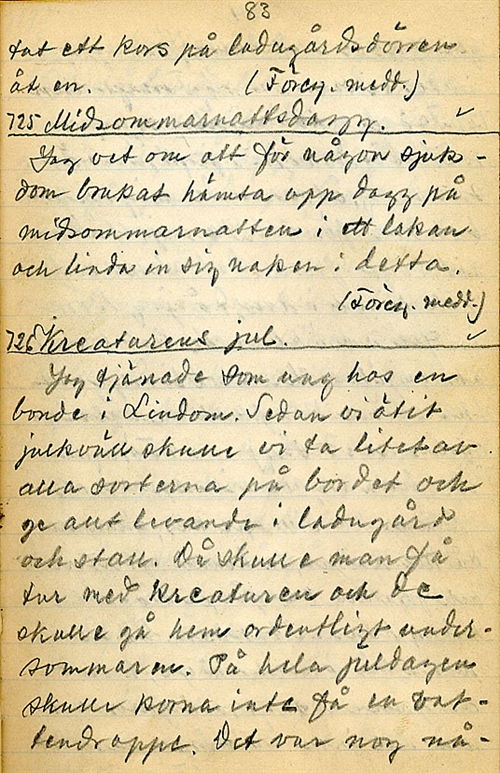 83
tat ett kors på ladugårdsdörren
åt en. (Föreg. medd.)
725 Midsommarnattsdagg. ✓
Jag vet om att för någon sjuk-
dom brukat hämta opp dagg på
midsommarnatten i ett lakan
och linda in sig naken i detta.
(Föreg. medd.)
726 Kreaturens jul. ✓
Jag tjänade som ung hos en
bonde i Lindom. Sedan vi ätit
julkväll skulle vi ta litet av
alla sorterna på bordet och
ge allt levande i ladugård
och stall. Då skulle man få
tur med kreaturen och de
skulle gå hem ordentligt under
sommaren. På hela juldagen
skulle korna inte få en vat-
tendroppe. Det var nog nå-